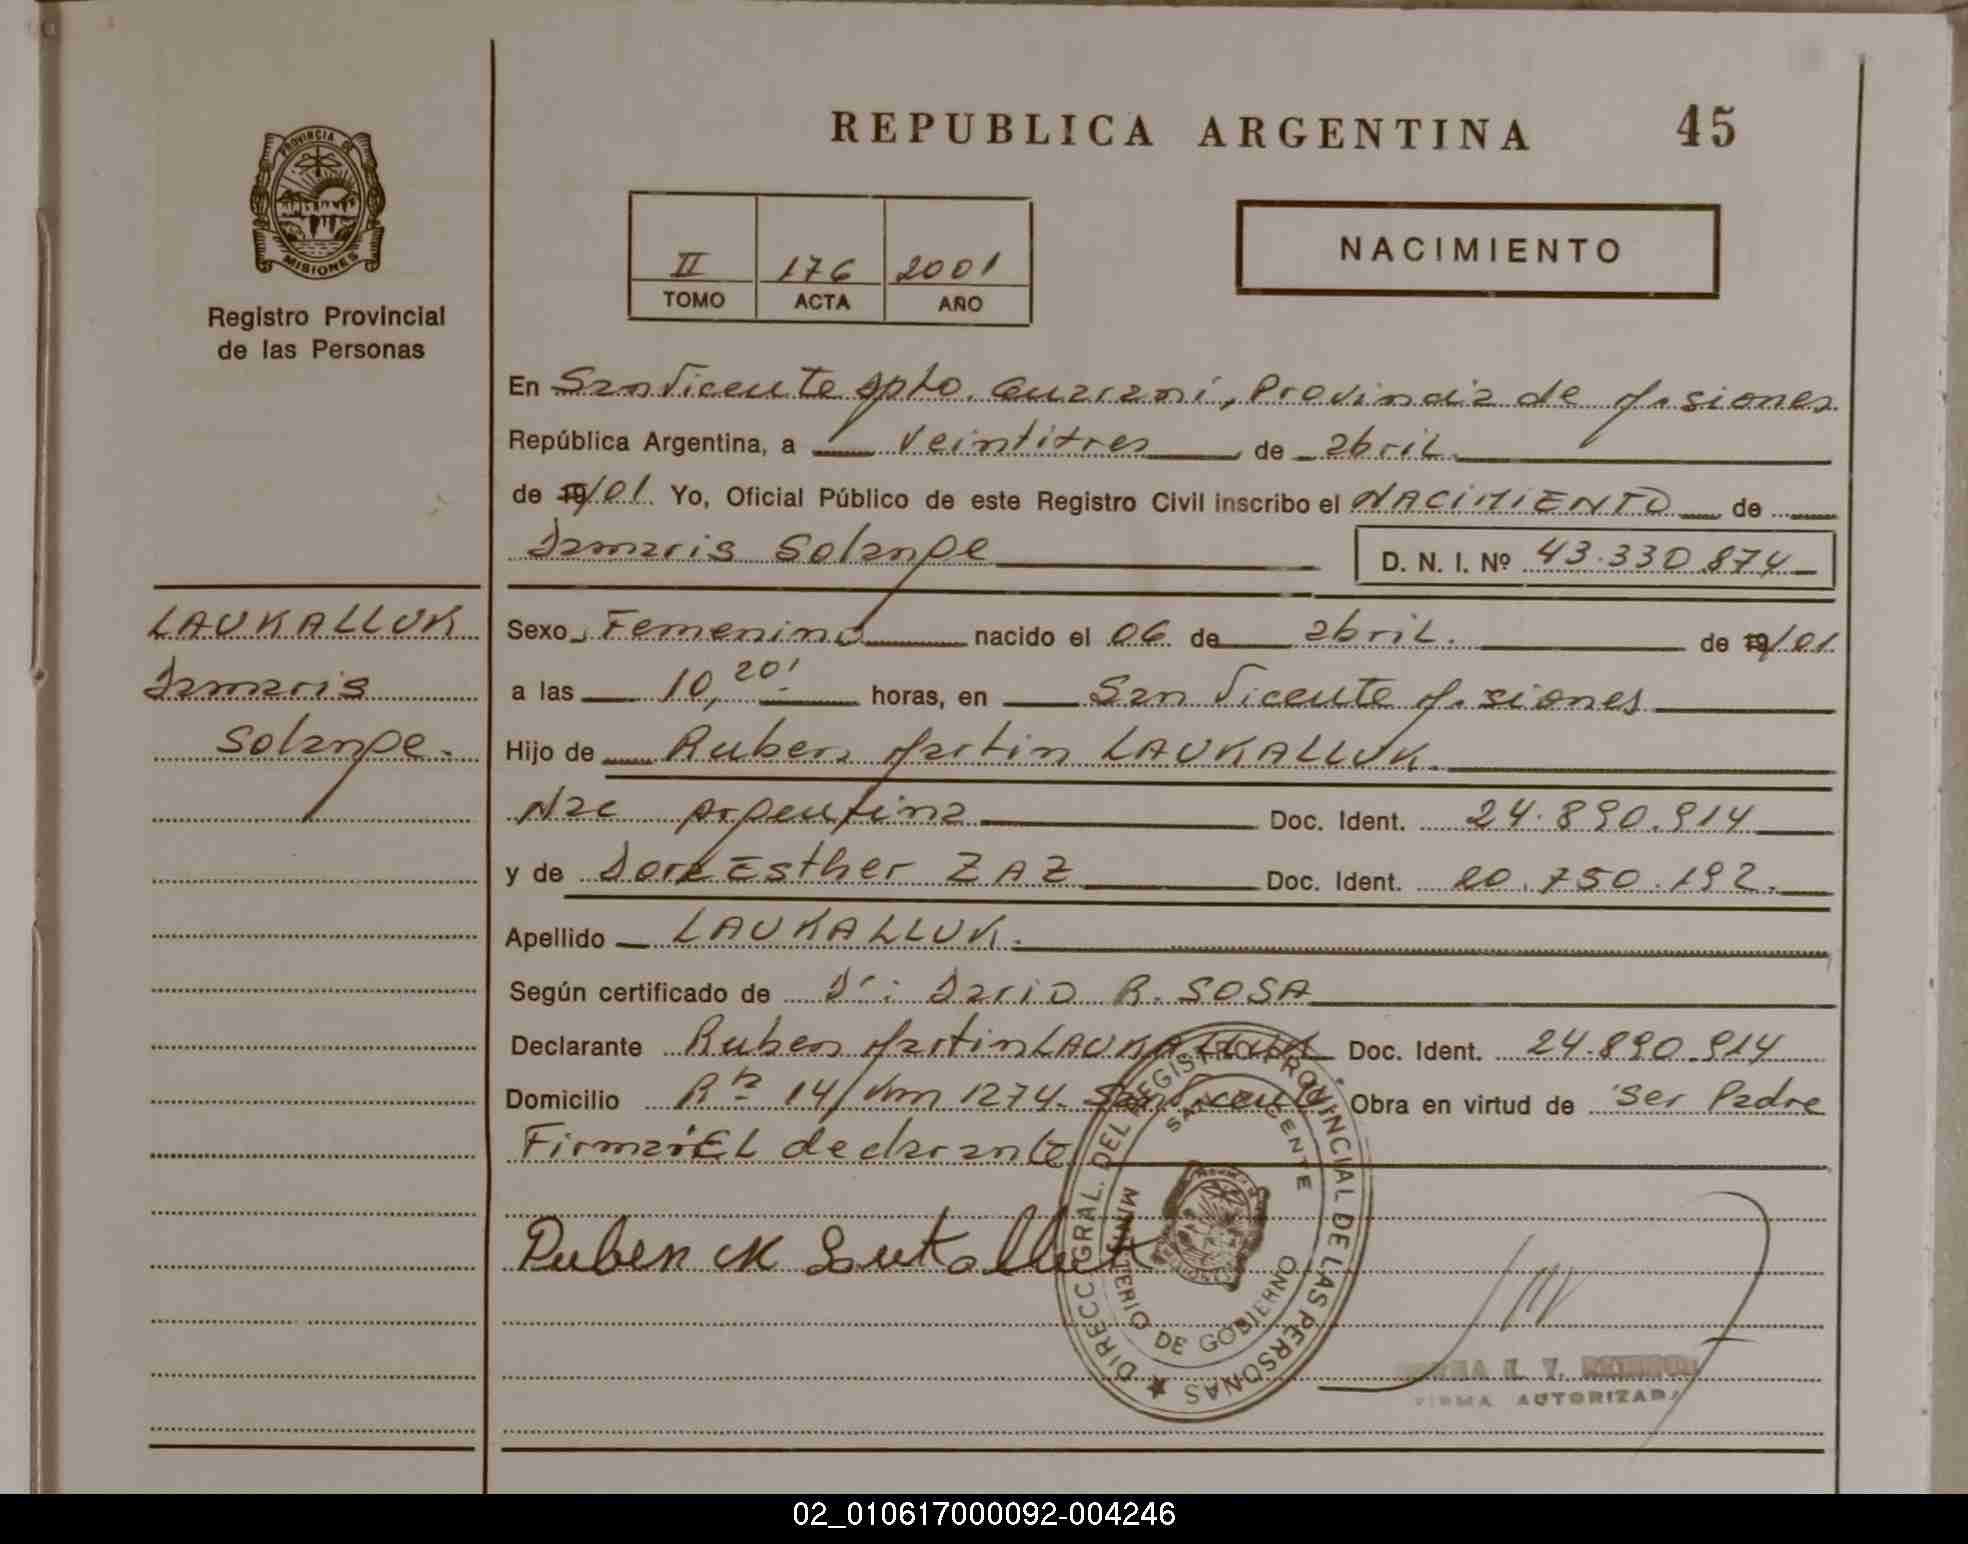 REPUBLICA ARGENTINA 45
PROVINCIA DE
MISIONES
Registro Provincial
de las Personas
II 176 2001
TOMO ACTA AÑO
NACIMIENTO
En San Vicente Dpto. Guarani, Provincia de Misiones
República Argentina, a Veintitres de abril.
de 19/01 Yo, Oficial Público de este Registro Civil inscribo el NACIMIENTO de
Damaris Solange D. N. I. Nº 43.330.874
LAUKALLUK
Damaris
Solange.
Sexo Femenino nacido el 06 de abril. de 19/01
a las 10,20' horas, en San Vicente Misiones
Hijo de Ruben Martin LAUKALLUK.
Nac Argentina Doc. Ident. 24.890.914
y de Dora Esther ZAZ Doc. Ident. 20.750.192.
Apellido LAUKALLUK.
Según certificado de Dr: Dario R. SOSA
Declarante Ruben Martin LAUKALLUK Doc. Ident. 24.890.914
Domicilio Rta 14/Km 1274. San Vicente Obra en virtud de Ser Padre
Firma: EL declarante
Ruben M Laukalluk
DIRECC. GRAL. DEL REGISTRO PROVINCIAL DE LAS PERSONAS
SAN VICENTE
MINISTERIO DE GOBIERNO
FIRMA AUTORIZADA
02_010617000092-004246